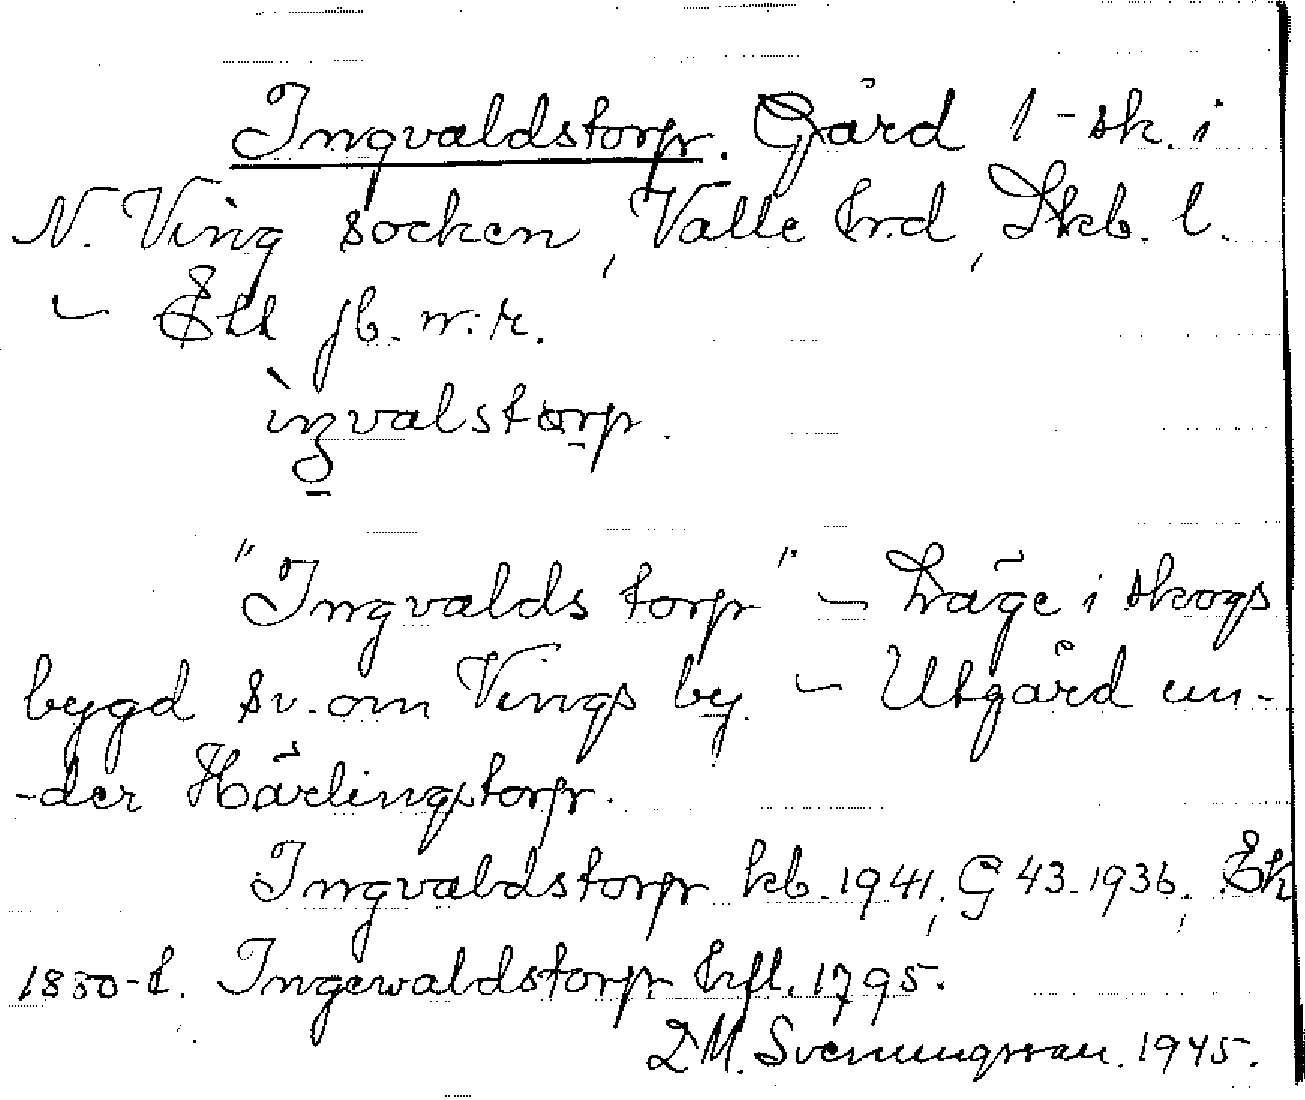 Ingvaldstorp. Gård 1-sk. i
N. Ving socken, Valle hrd, Skb. l.
– Ett jb. n:r.
ìŋvalstorp.
"Ingvalds torp" – Läge i skogs
bygd sv. om Vings by. – Utgård un-
-der Härlingstorp.
Ingvaldstorp kb. 1941, G 43. 1936, Ek
1880-t. Ingewaldstorp hfl. 1795.
D M. Svenungsson. 1945.